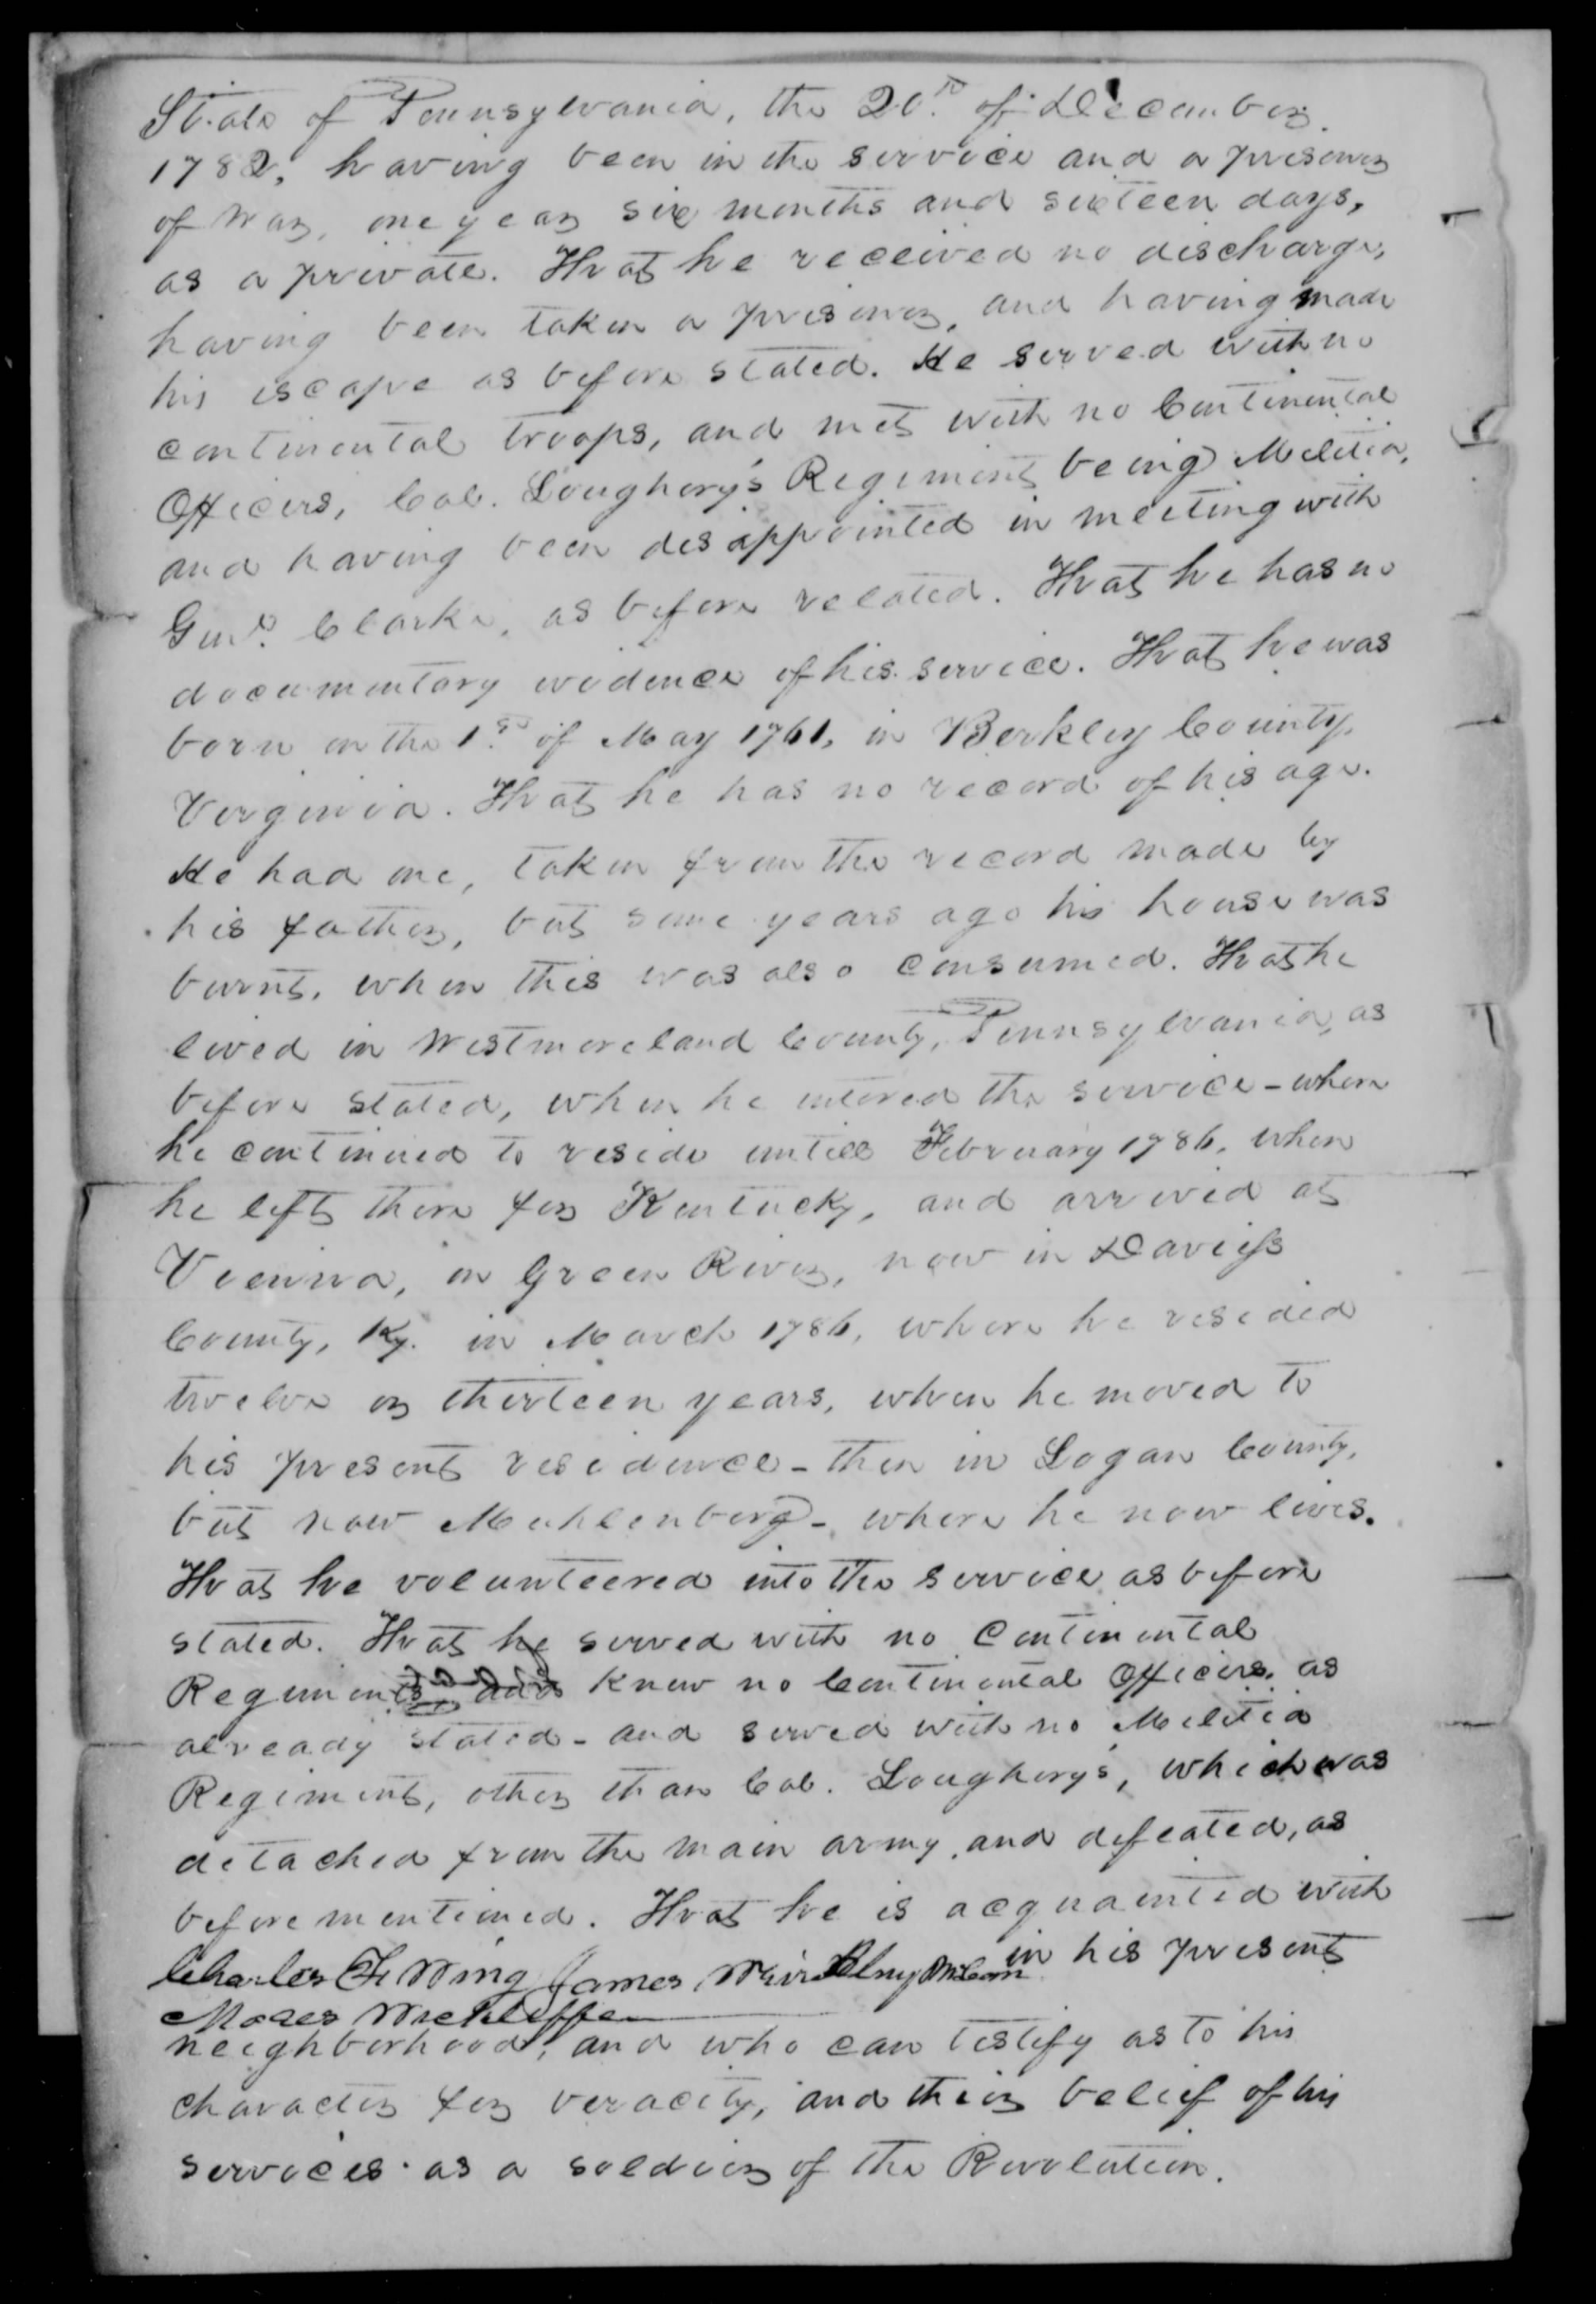 State of Pennsylvania, the 20th of December
1782, having been in the service and a prisoner
of war, one year six months and sixteen days,
as a private. That he received no discharge,
having been taken a prisoner, and having made
his escape as before stated. He served with no
continental troops, and met with no Continental
Officers, Col. Loughery's Regiment being Militia,
and having been disappointed in meeting with
Genl. Clarke, as before related. That he has no
documentary evidence of his service. That he was
born on the 1st of May 1761, in Berkley County,
Virginia. That he has no record of his age.
He had one, taken from the record made by
his father, but some years ago his house was
burnt, when this was also consumed. That he
lived in Westmoreland County, Pennsylvania, as
before stated, when he entered the service - where
he continued to reside untill February 1786, when
he left there for Kentucky, and arrived at
Vienna, on Green River, now in Daviess
County, Ky. in March 1786, where he resided
twelve or thirteen years, when he moved to
his present residence - then in Logan County,
but now Muhlenberg - where he now lives.
That he volunteered into the service as before
stated. That he served with no Continental
Regiments, and knew no Continental Officers, as
already stated - and served with no Militia
Regiment, other than Col. Loughery's, which was
detached from the main army, and defeated, as
before mentioned. That he is acquainted with
Charles F Wing James Weir in his present
Moses Wickliffe
neighborhood, and who can testify as to his
character for veracity, and their belief of his
services as a soldier of the Revolution.